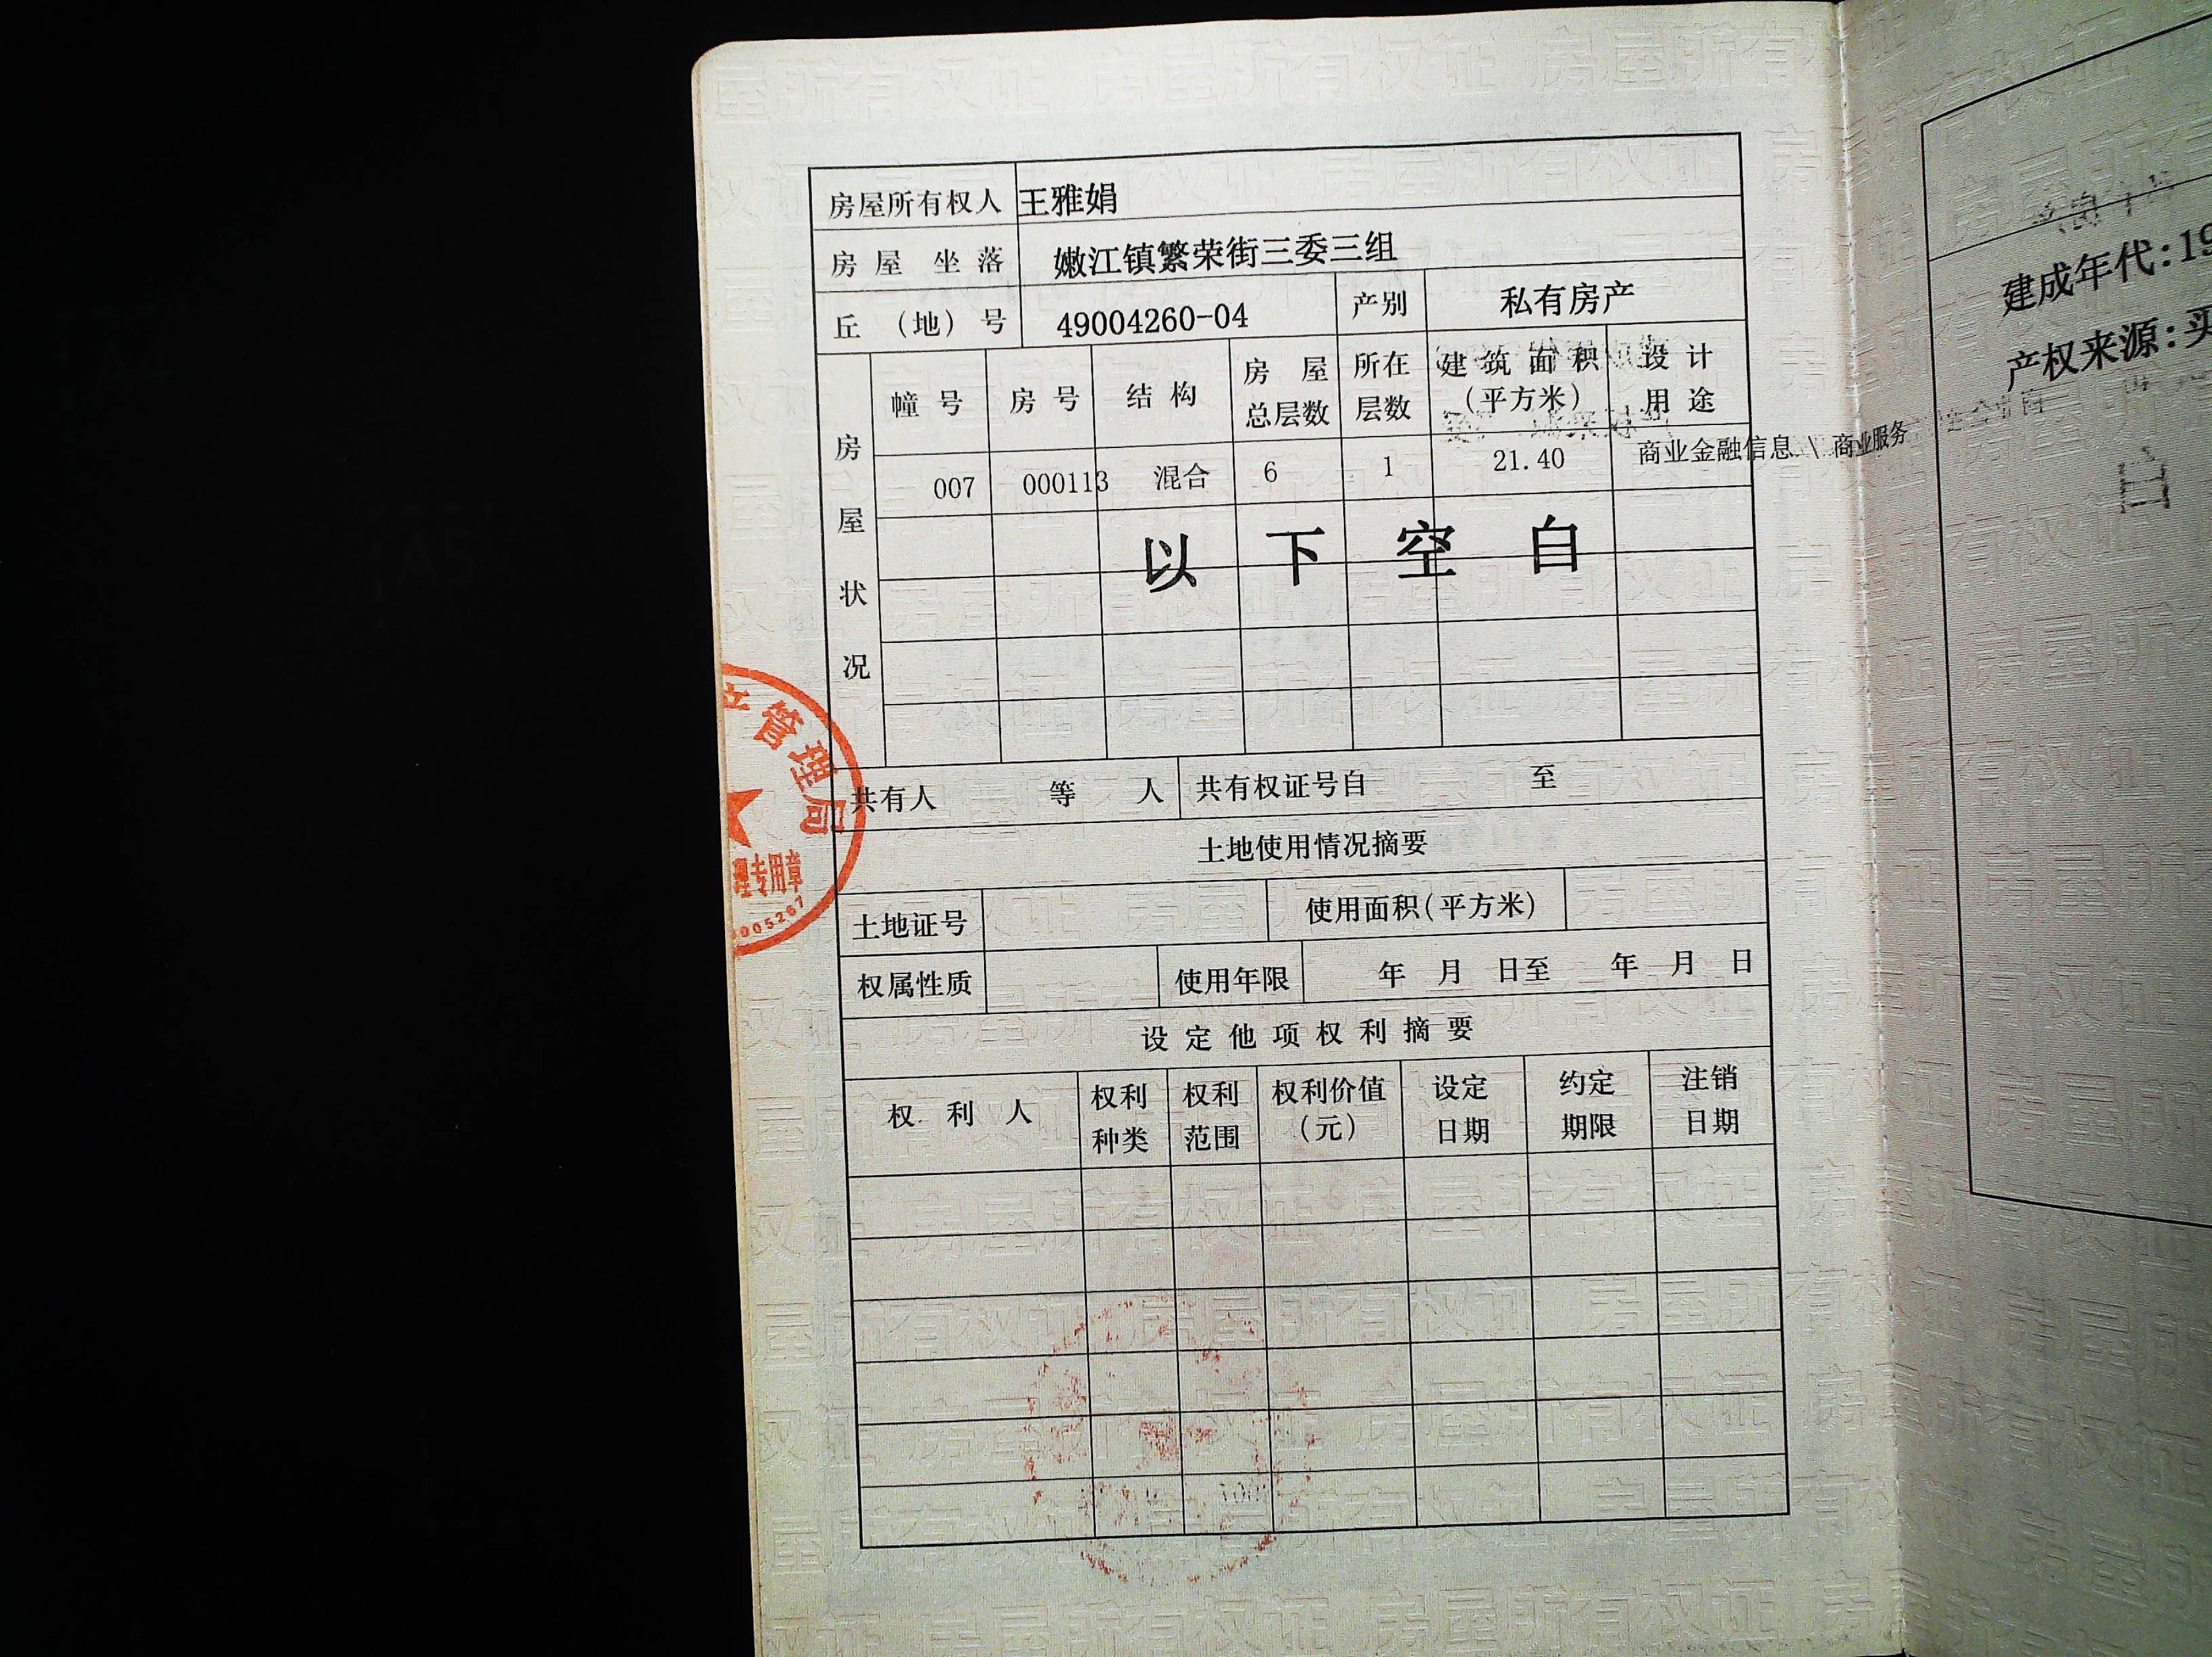 房屋所有权人 王雅娟
房屋坐落 嫩江镇繁荣街三委三组
丘（地）号 49004260-04 产别 私有房产
房屋状况
幢号 房号 结构 房屋总层数 所在层数 建筑面积（平方米） 设计用途
007 000113 混合 6 1 21.40 商业金融信息 \ 商业服务
以下空白
共有人 等 人 共有权证号自 至
土地使用情况摘要
土地证号 使用面积(平方米)
权属性质 使用年限 年 月 日至 年 月 日
设定他项权利摘要
权利人 权利种类 权利范围 权利价值（元） 设定日期 约定期限 注销日期
管理局
理专用章
005267
建成年代:19
产权来源:买